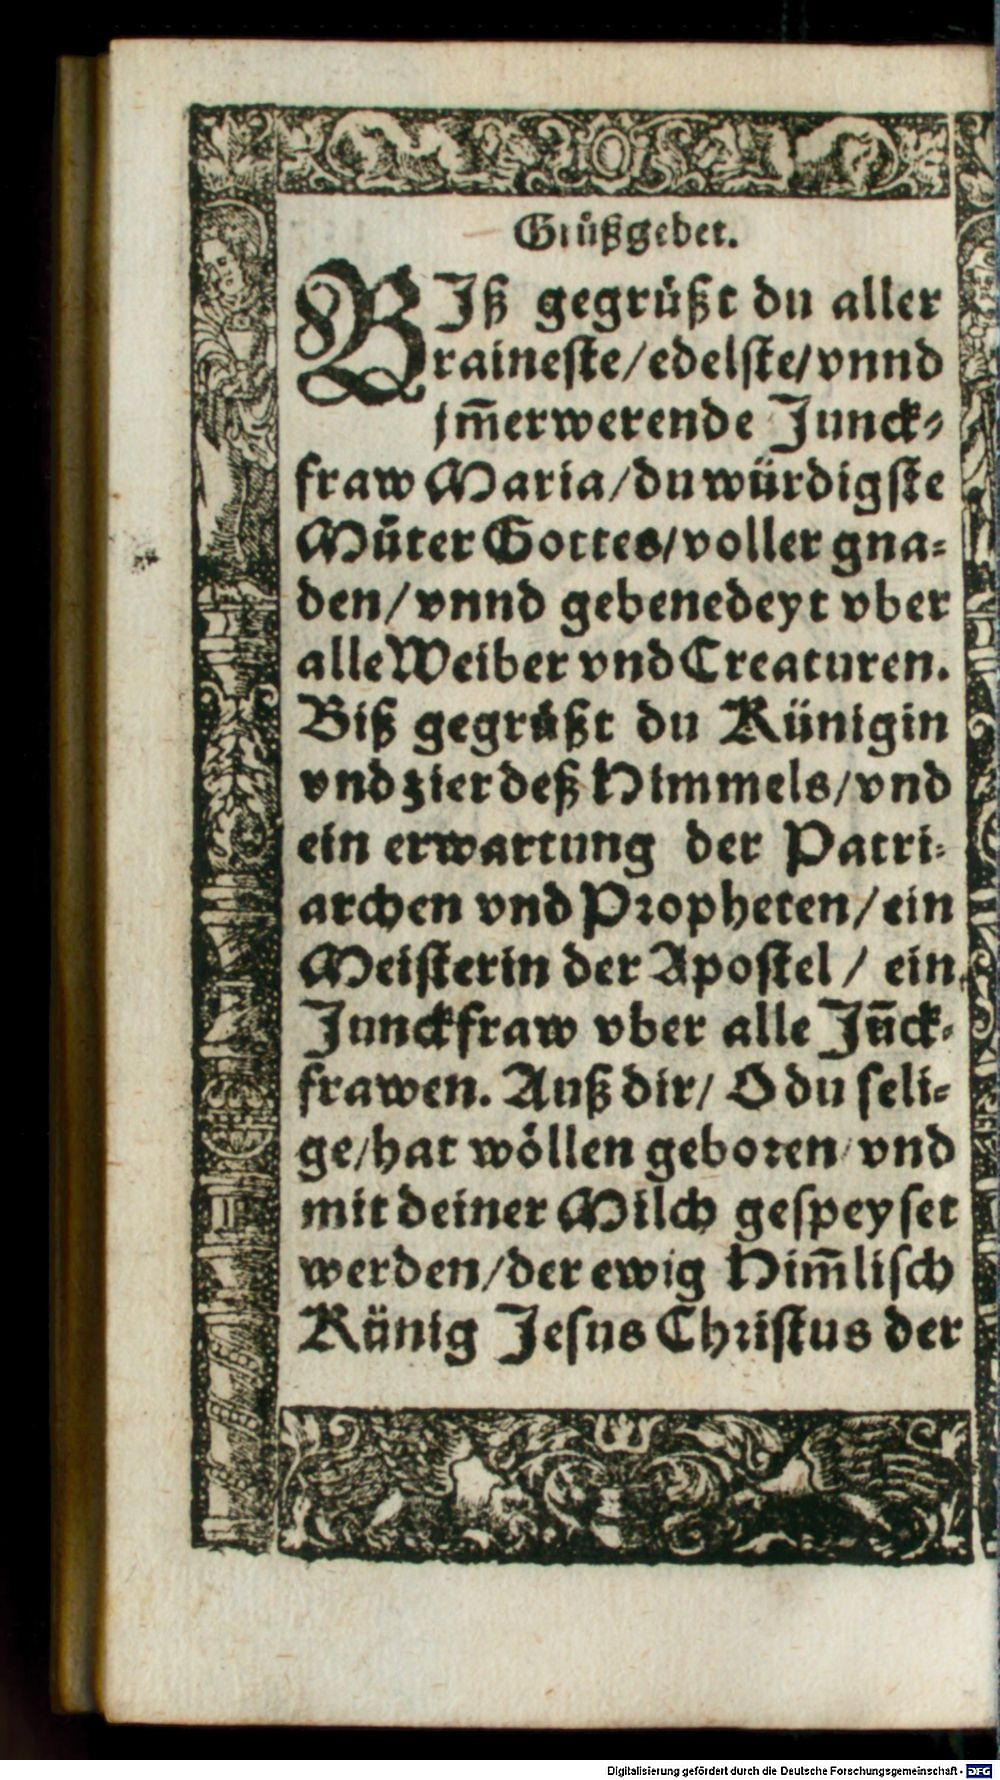 Grůßgebet.
BIß gegrüßt du aller
raineste/edelste/vnnd
jm̄erwerende Junck⸗
fraw Maria/du würdigste
Můter Gottes/voller gna⸗
den/vnnd gebenedeyt vber
alle Weiber vnd Creaturen.
Biß gegrüßt du Künigin
vnd zier deß Himmels/vnd
ein erwartung der Patri⸗
archen vnd Propheten/ein
Meisterin der Apostel/ ein
Junckfraw vber alle Jūck⸗
frawen. Auß dir/ O du seli⸗
ge/hat wöllen geboren/vnd
mit deiner Milch gespeyset
werden/der ewig Him̄lisch
Künig Jesus Christus der
Digitalisierung gefördert durch die Deutsche Forschungsgemeinschaft - DFG